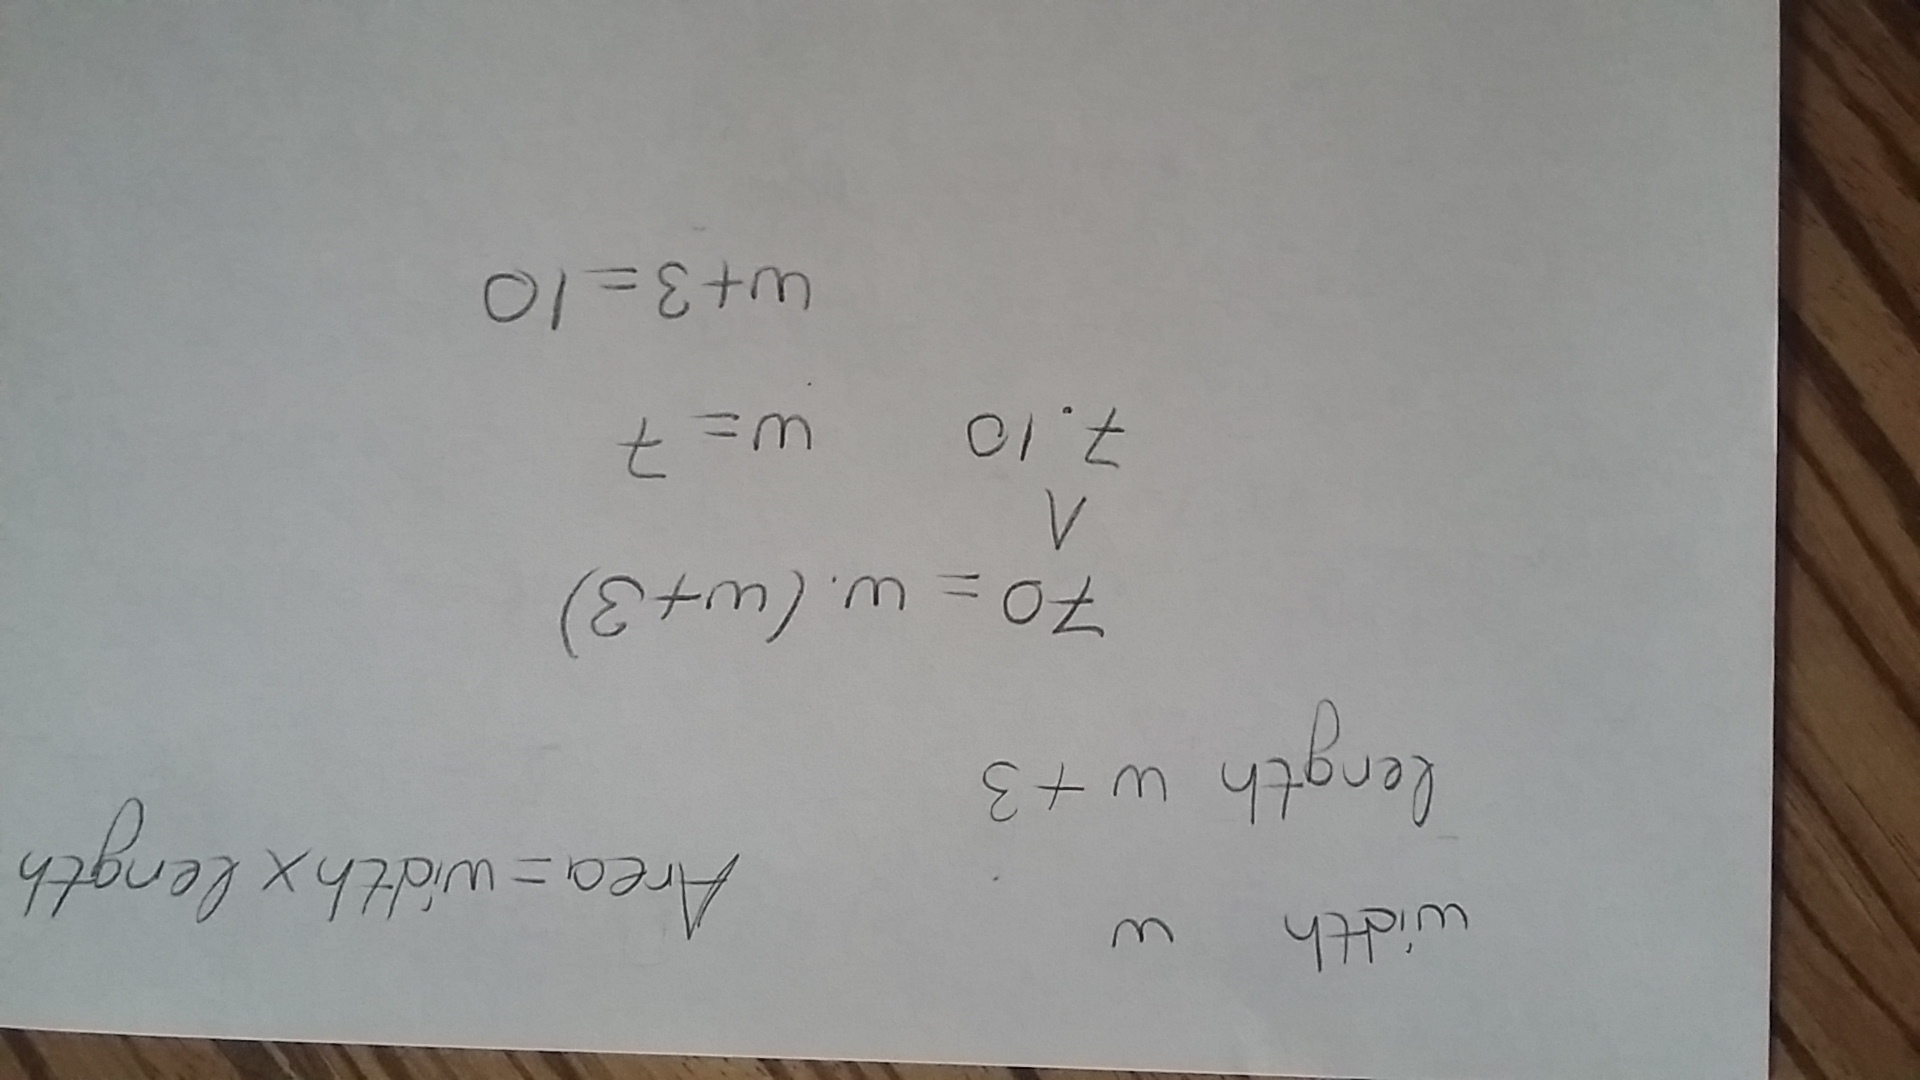 width w
length w + 3
Area = width x length
70 = w . (w+3)
7 . 10
w = 7
w+3 = 10